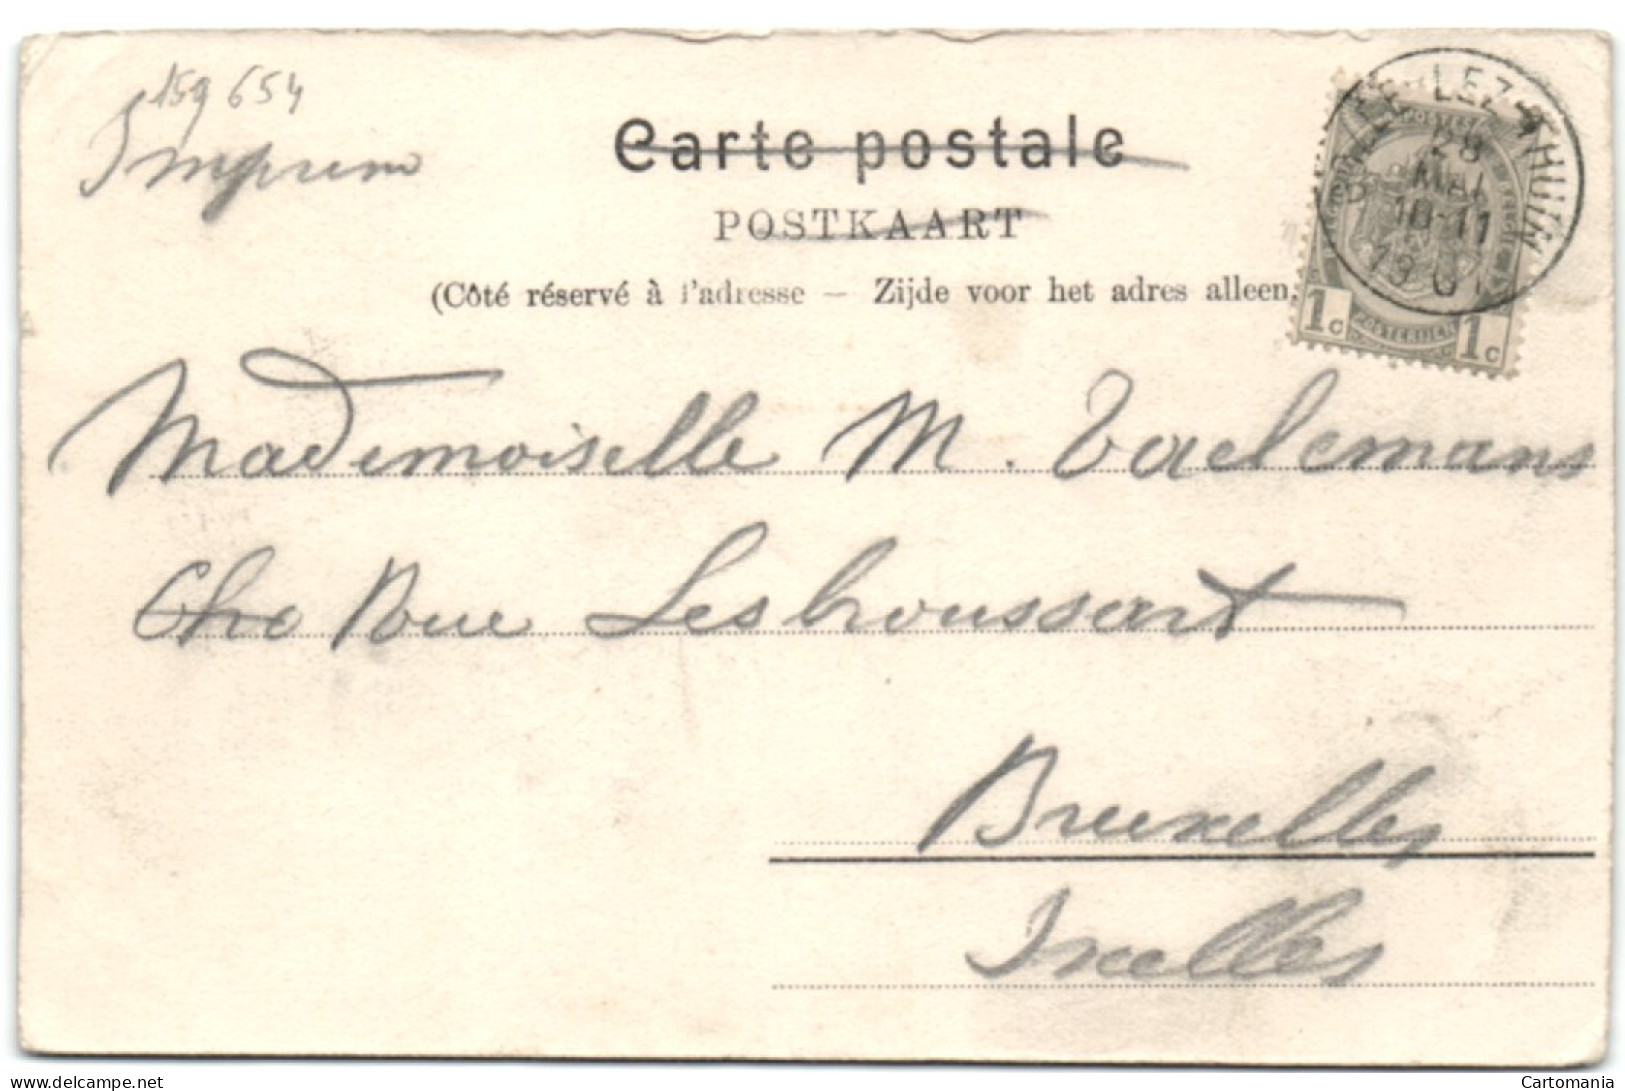 159 654
Imprimé
Carte postale
POSTKAART
(Côté réservé à l'adresse — Zijde voor het adres alleen.
LEZ-THUIN
28
MAI
10-11
1901
POSTES
POSTERIJEN
1c 1c
Mademoiselle M. Vaelemans
Rue Lesbroussart
Bruxelles
Ixelles
Cartomania